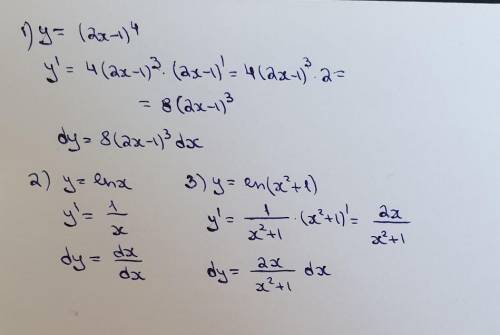 1) y = (2x-1)^4
y' = 4(2x-1)^3 · (2x-1)' = 4(2x-1)^3 · 2 =
= 8(2x-1)^3
dy = 8(2x-1)^3 dx
2) y = lnx
y' = 1/x
dy = dx/dx
3) y = ln(x²+1)
y' = 1/(x²+1) · (x²+1)' = 2x/(x²+1)
dy = 2x/(x²+1) dx